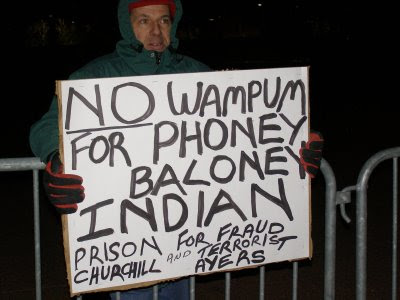 NO WAMPUM
FOR PHONEY
BALONEY
INDIAN
PRISON FOR FRAUD
CHURCHILL AND TERRORIST
AYERS